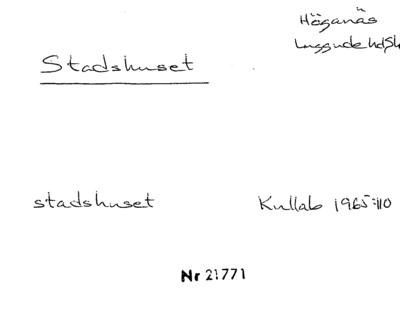 Höganäs
Luggude hd, Sk
Stadshuset
stadshuset
Kullab 1965:110
Nr 21771